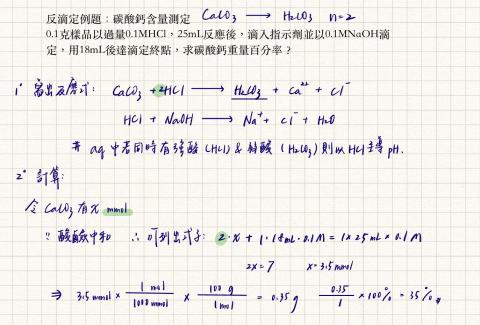 反滴定例題：碳酸鈣含量測定 CaCO₃ ⟶ H₂CO₃ n=2
0.1克樣品以過量0.1MHCl，25mL反應後，滴入指示劑並以0.1MNaOH滴
定，用18mL後達滴定終點，求碳酸鈣重量百分率？
1° 寫出反應式： CaCO₃ + 2HCl ⟶ H₂CO₃ + Ca²⁺ + Cl⁻
HCl + NaOH ⟶ Na⁺ + Cl⁻ + H₂O
aq 中若同時有強酸 (HCl) & 弱酸 (H₂CO₃) 則以 HCl 主導 pH.
2° 計算:
令 CaCO₃ 有 x mmol
∵ 酸鹼中和 ∴ 可列出式子: 2·x + 1·18mL·0.1M = 1×25mL×0.1M
2x=7 x=3.5mmol
⇒ 3.5mmol × 1mol/1000mmol × 100g/1mol = 0.35g 0.35/1 ×100% = 35%